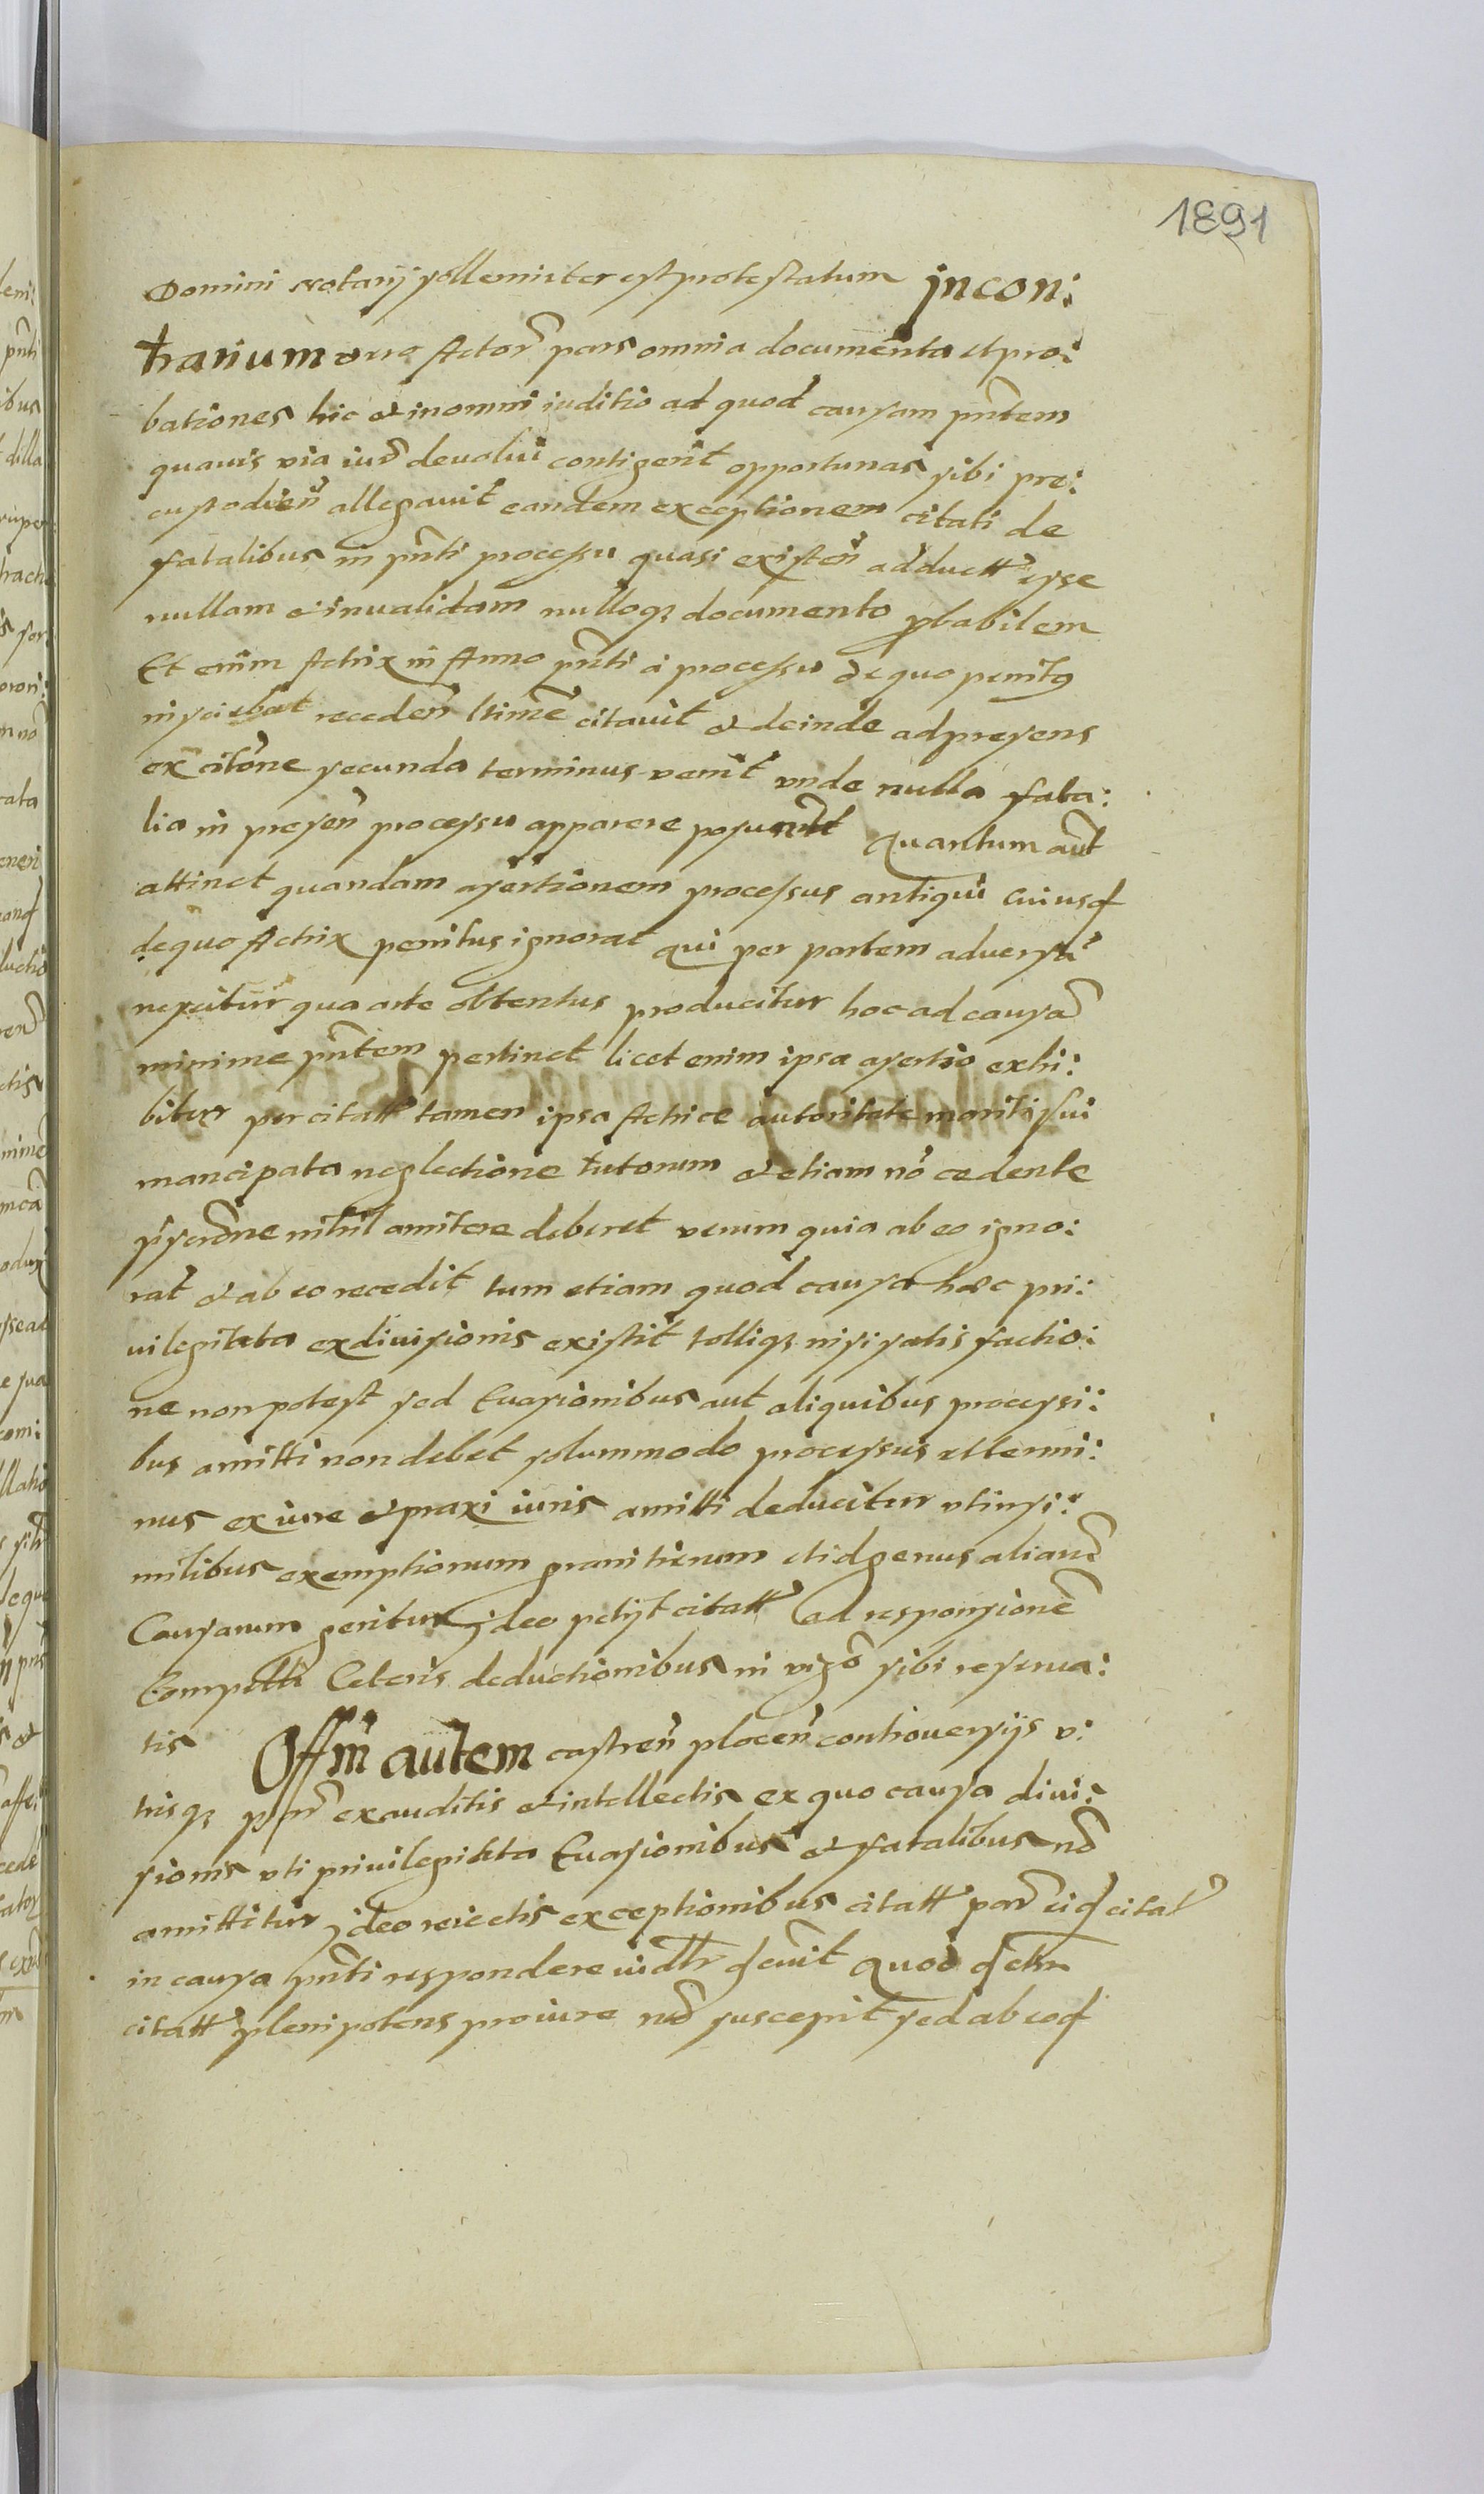 1891
Domini Notarij sollemniter est protestatum Incon:
trarium vero Actor̃ pars omnia documenta et pro:
bationes hic et in omni iuditio ad quod causam pñtem
quavis via iur̃ devolvi contigerit opportunas sibi pre:
custodien̄ allegavit eandem exceptionem citati de
fatalibus in pñti processu quasi existeñ adductt esse
nullam et invalidam nulloq₃ documento ꝓbabilem
Et enim Actrix in Anno pñti à processu de quo penitꝰ
nesciebat receden̄ ltime citavit et deinde ad presens
ex citõne secunda terminus venit unde nulla fata:
lia in presen̄ processu apparere posunt Quantum aut̃
attinet quandam asertionem processus antiqui cuiusd
de quo Actrix penitus ignorat qui per partem adversã
nescitur qua arte obtentus producitur hoc ad causã
minime pñtem pertinet licet enim ipsa asertio exhi:
bitur per citatt tamen ipsa Actrice autoritate mariti sui
mancipata neglectione tutorum et etiam nõ cedente
nihil amitere deberet verum quia ab eo igno:
rat et ab eo recedit tum etiam quod causa hæc pri:
vilegitata ex divisionis existit tolliq₃ nisi satisfactio:
ne non potest sed Evasionibus aut aliquibus processi:
bus amitti non debet solummodo processus et termi:
nus ex iure et praxi iuris amitti deducitur uti in si:
milibus exemptionum granitierum et id genus aliarũ
Causarum geritur ideo petijt citatt ad responsionẽ
Compelli Ceteris deductionibus in vigõ sibi reserva:
tis Offm̃ autem castren̄ plocen̄ controversijs u:
trisq₃ pr̃ exauditis et intellectis ex quo causa divi:
sionis uti privilegitata Evasionibus et fatalibus nõ
amittitur ideo reiectis exceptionibus citatt par̃ eid citat
in causa pñti respondere iudtr dcrevit Quod dctm̃
citatt plenipotens pro iure nõ suscepit sed ab eod